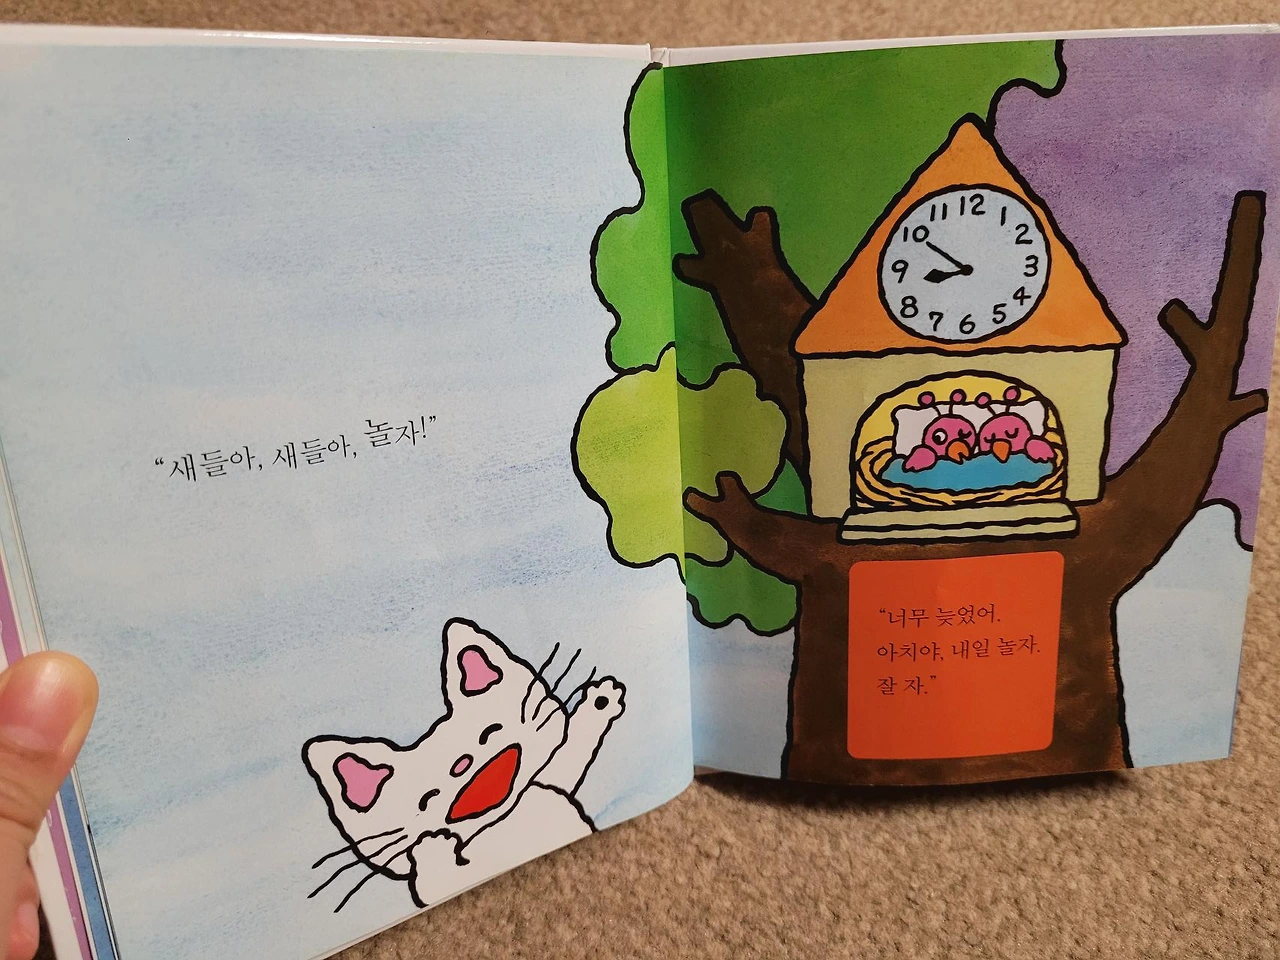 “새들아, 새들아, 놀자!”
11 12 1
10 2
9 3
8 4
7 6 5
“너무 늦었어.
아치야, 내일 놀자.
잘 자.”